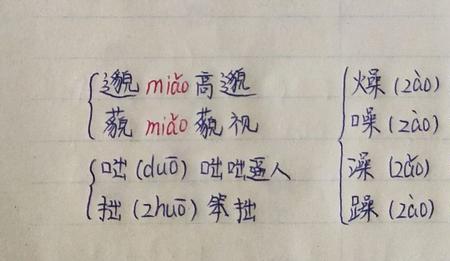 邈 miǎo 高邈
藐 miǎo 藐视
咄 (duō) 咄咄逼人
拙 (zhuō) 笨拙
燥 (zào)
噪 (zào)
澡 (zǎo)
躁 (zào)